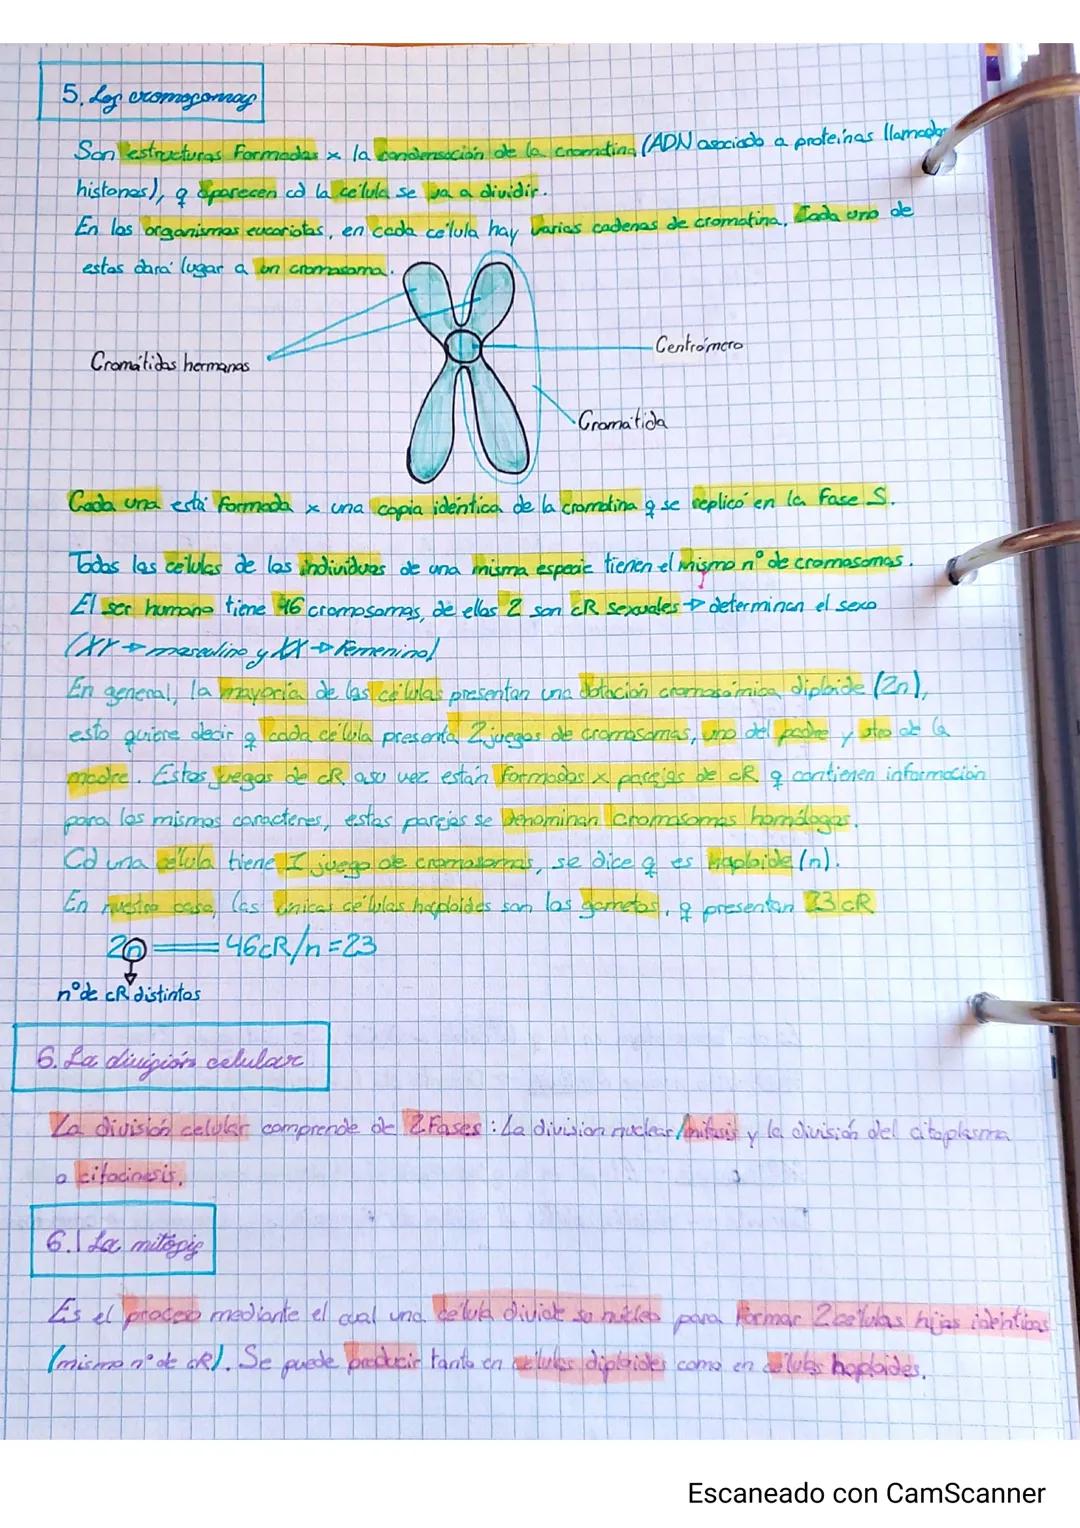 5. Los cromosomas
Son estructuras formadas x la condensación de la cromatina (ADN asociado a proteínas llamadas
histonas), q aparecen cd la célula se va a dividir.
En los organismos eucariotas, en cada célula hay varias cadenas de cromatina. Cada una de
estas dará lugar a un cromosoma.
Centrómero
Cromátidas hermanas
Cromátida
Cada una está formada x una copia idéntica de la cromatina q se replicó en la fase S.
Todas las células de los individuos de una misma especie tienen el mismo nº de cromosomas.
El ser humano tiene 46 cromosomas, de ellos 2 son cR sexuales → determinan el sexo
(XY → masculino y XX → femenino)
En general, la mayoría de las células presentan una dotación cromosómica diploide (2n),
esto quiere decir q cada célula presenta 2 juegos de cromosomas, uno del padre y otro de la
madre. Estos juegos de cR a su vez están formados x parejas de cR q contienen información
para los mismos caracteres, estas parejas se denominan cromosomas homólogos.
Cd una célula tiene 1 juego de cromosomas, se dice q es haploide (n).
En nuestro caso, las únicas células haploides son los gametos, q presentan 23 cR
2n = 46cR/n=23
nºde cR distintos
6. La división celular
La división celular comprende de 2 Fases: La división nuclear/mitosis y la división del citoplasma
o citocinesis.
6.1 La mitosis
Es el proceso mediante el cual una célula divide su núcleo para formar 2 células hijas idénticas
(mismo nº de cR). Se puede producir tanto en células diploides como en células haploides.
Escaneado con CamScanner